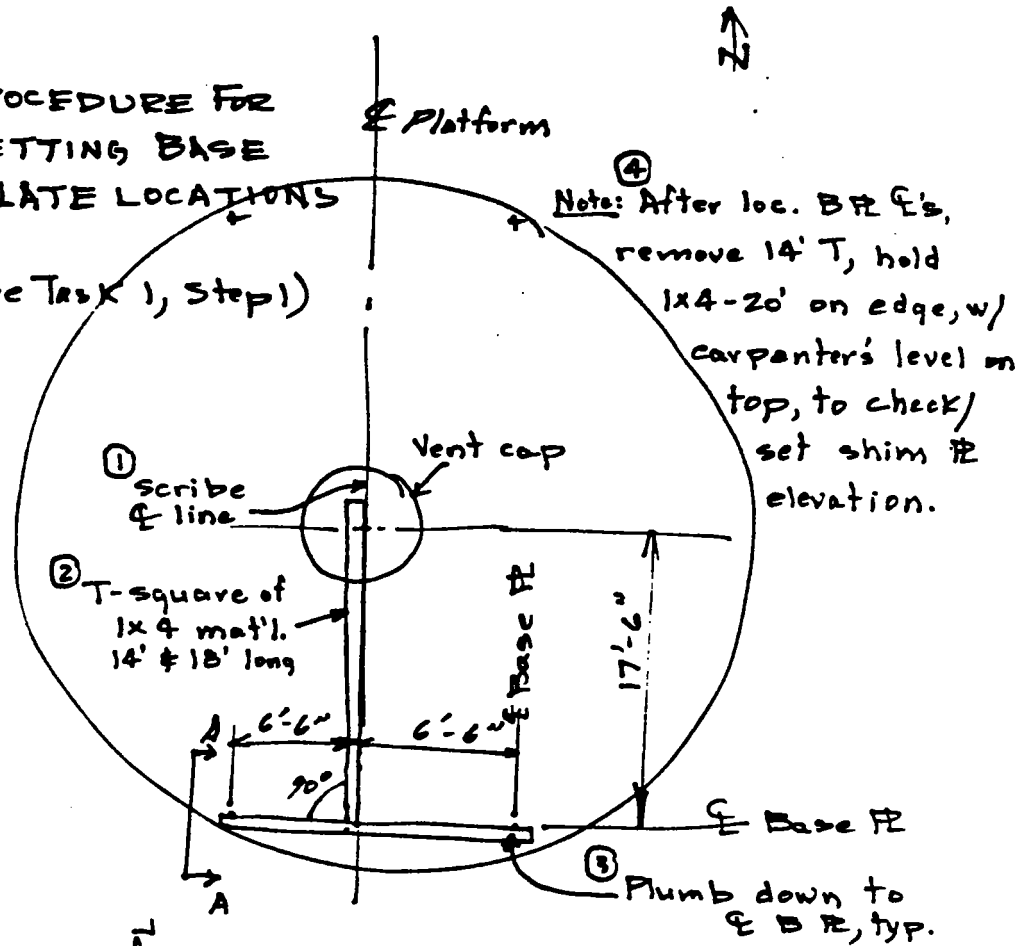 OCEDURE FOR
ETTING BASE
LATE LOCATIONS
e TASK 1, Step 1)
N
℄ Platform
④
Note: After loc. B ℄'s,
remove 14' T, hold
1x4-20' on edge, w/
carpenter's level on
top, to check/
set shim PL
elevation.
①
scribe
℄ line
Vent cap
②
T-square of
1x4 mat'l.
14' & 18' long
℄ Base PL
17'-6"
6'-6"
6'-6"
90°
A
A
℄ Base PL
③
Plumb down to
℄ B PL, typ.